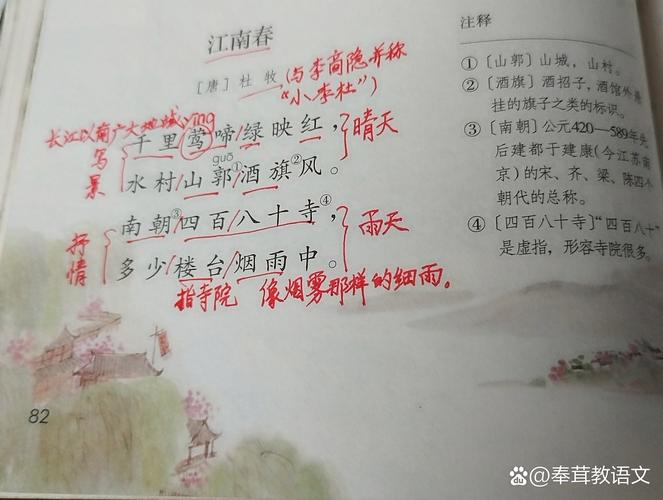 江南春
[唐] 杜 牧 (与李商隐并称
“小李杜”)
长江以南广大地域 yīng
千里莺啼/绿映红, 晴天
写景
guō
水村/山郭①/酒旗②风。
南朝③/四百/八十寺④, 雨天
抒情
多少/楼台/烟雨中。
指寺院 像烟雾那样的细雨。
82
注释
①〔山郭〕山城,山村。
②〔酒旗〕酒招子,酒馆外
挂的旗子之类的标识。
③〔南朝〕公元420—589年先
后建都于建康(今江苏南
京)的宋、齐、梁、陈四个
朝代的总称。
④〔四百八十寺〕“四百八十”
是虚指,形容寺院很多。
奉茸教语文